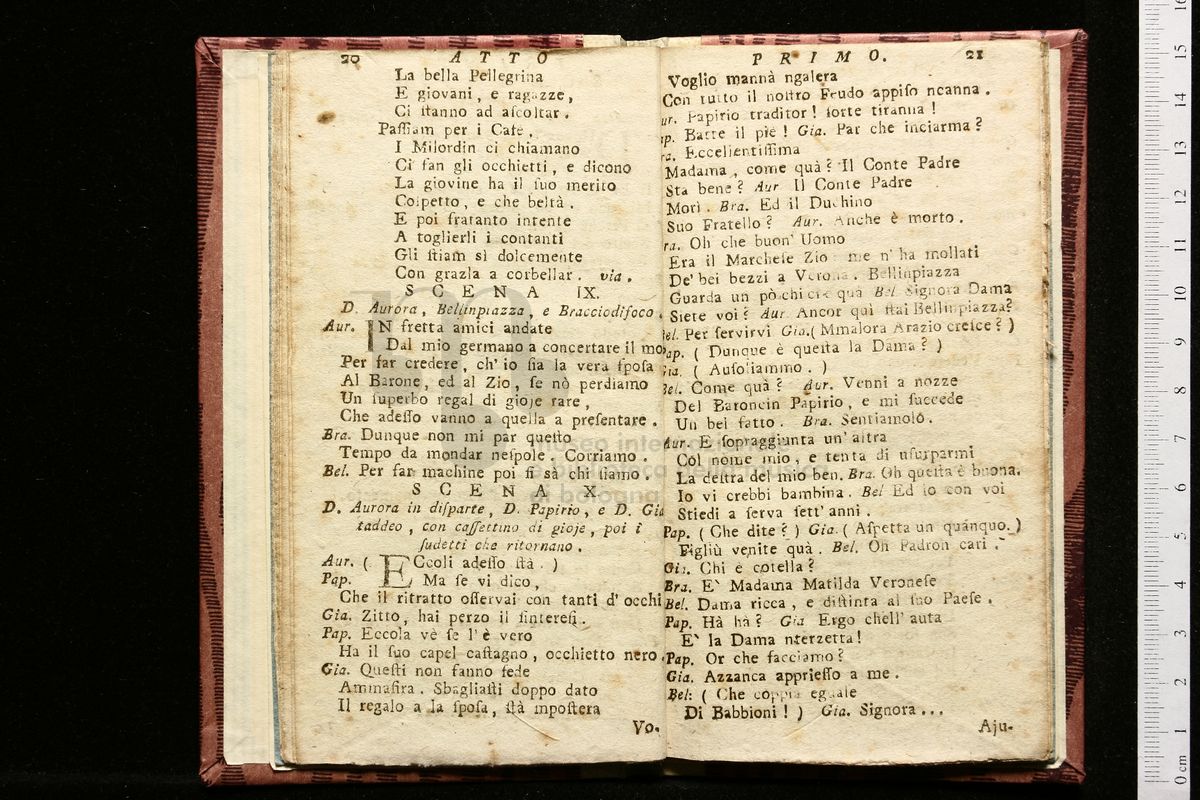 20 ATTO
La bella Pellegrina
E giovani, e ragazze,
Ci ſtanno ad aſcoltar.
Paſſiam per i Cafè,
I Milordin ci chiamano
Ci fan gli occhietti, e dicono
La giovine ha il ſuo merito
Coſpetto, e che beltà.
E poi fratanto intente
A toglierli i contanti
Gli ſtiam sì dolcemente
Con grazla a corbellar. via.
SCENA IX.
D. Aurora, Bellinpiazza, e Bracciodifoco.
Aur. IN fretta amici andate
Dal mio germano a concertare il mo
Per far credere, ch'io ſia la vera ſpoſa
Al Barone, ed al Zio, ſe nò perdiamo
Un ſuperbo regal di gioje rare,
Che adeſſo vanno a quella a preſentare.
Bra. Dunque non mi par queſto
Tempo da mondar neſpole. Corriamo.
Bel. Per far machine poi ſi sà chi ſiamo.
SCENA X.
D. Aurora in diſparte, D. Papirio, e D. Gia
taddeo, con caſſettino di gioje, poi i
ſudetti che ritornano.
Aur. ( ECcoli adeſſo ſtà. )
Pap. Ma ſe vi dico,
Che il ritratto oſſervai con tanti d'occhi
Gia. Zitto, hai perzo il ſintereſi.
Pap. Eccola vè ſe l'è vero
Ha il ſuo capel caſtagno, occhietto nero.
Gia. Queſti non fanno fede
Ammaſira. Sbagliaſti doppo dato
Il regalo a la ſpoſa, ſtà mpoſtera
Vo-
PRIMO. 21
Voglio mannà ngalera
Con tutto il noſtro Feudo appiſo ncanna.
ur. Papirio traditor! ſorte tiranna!
ap. Batte il piè! Gia. Par che inciarma?
ra. Eccellentiſſima
Madama, come quà? Il Conte Padre
Sta bene? Aur Il Conte Padre
Morì. Bra. Ed il Duchino
Suo Fratello? Aur. Anche è morto.
ra. Oh che buon' Uomo
Era il Marcheſe Zio: me n'ha mollati
De' bei bezzi a Verona. Bellinpiazza
Guarda un pò chi c'è quà Bel Signora Dama
Siete voi? Aur Ancor quì ſtai Bellinpiazza?
el. Per ſervirvi Gia. ( Mmalora Arazio creſce? )
ap. ( Dunque è queſta la Dama? )
ia. ( Auſoliammo. )
Bel. Come quà? Aur. Venni a nozze
Del Baroncin Papirio, e mi ſuccede
Un bel fatto. Bra. Sentiamolo.
Aur. E ſopraggiunta un' altra
Col nome mio, e tenta di uſurparmi
La deſtra del mio ben. Bra. Oh queſta è buona.
Io vi crebbi bambina. Bel Ed io con voi
Stiedi a ſerva ſett' anni.
Pap. ( Che dite? ) Gia. ( Aſpetta un quanquo. )
Figliù venite quà. Bel. Oh Padron cari.
Gia. Chi è coteſta?
Bra. E` Madama Matilda Veroneſe
Bel. Dama ricca, e diſtinta al ſuo Paeſe.
Pap. Hà hà? Gia Ergo chell' auta
E` la Dama nterzetta!
Pap. Or che facciamo?
Gia. Azzanca apprieſſo a me.
Bel: ( Che coppia eguale
Di Babbioni! ) Gia. Signora...
Aju-
museo internazionale
e biblioteca della musica
di bologna
0 cm 1 2 3 4 5 6 7 8 9 10 11 12 13 14 15 16